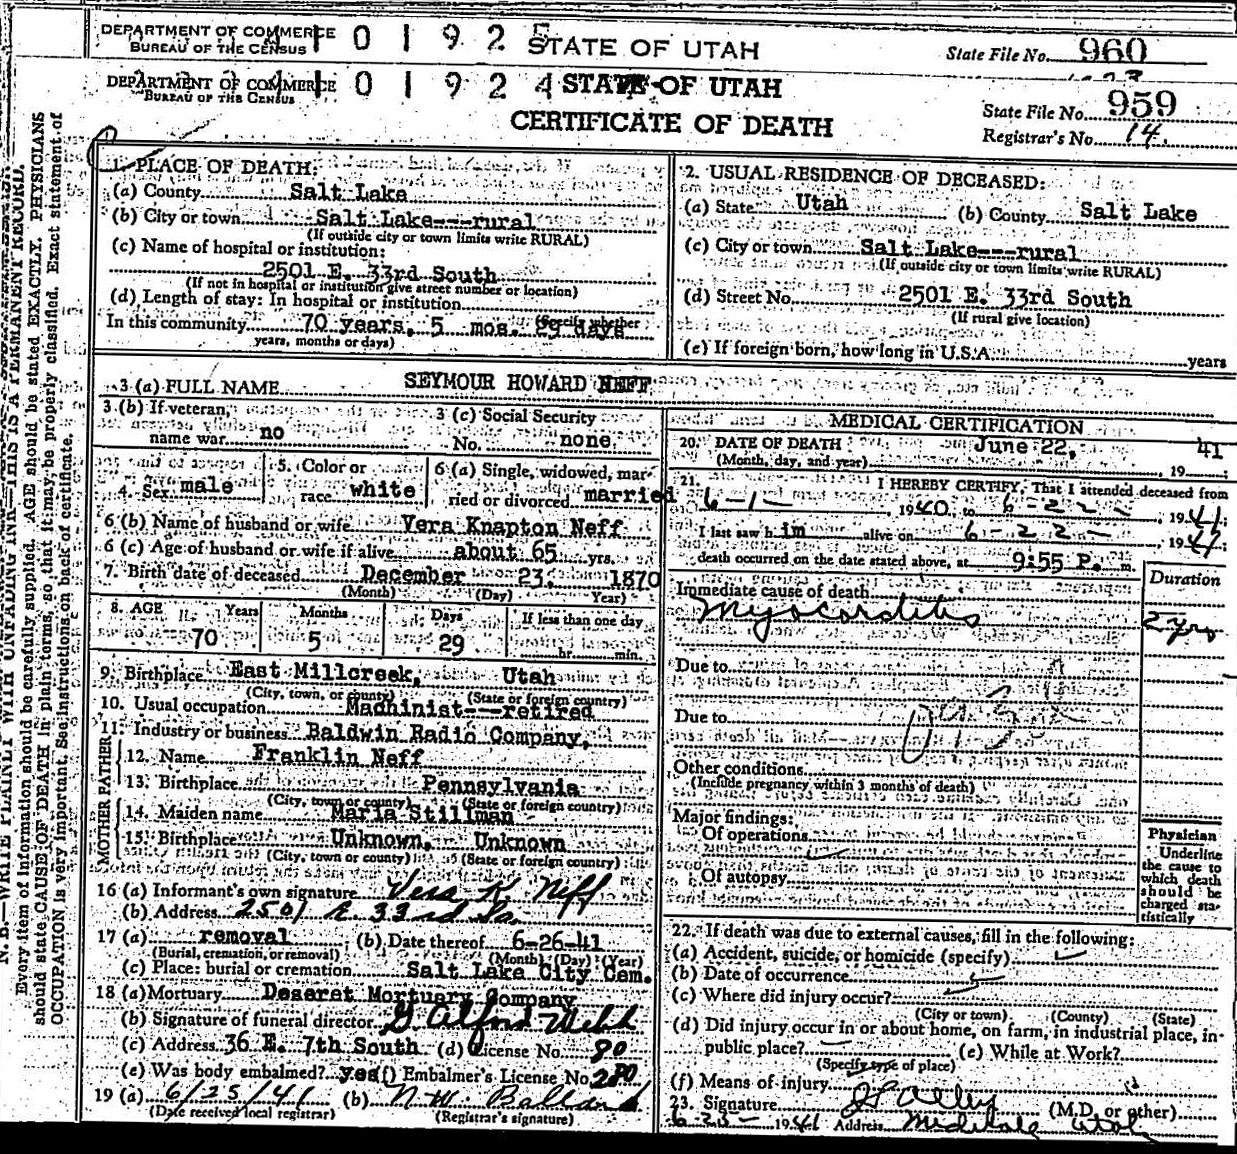 DEPARTMENT OF COMMERCE
BUREAU OF THE CENSUS
1 0 1 9 2 5
STATE OF UTAH
State File No. 960
DEPARTMENT OF COMMERCE
BUREAU OF THE CENSUS
1 0 1 9 2 4
STATE OF UTAH
CERTIFICATE OF DEATH
State File No. 959
Registrar's No. 14.
N. B.—WRITE PLAINLY WITH UNFADING INK—THIS IS A PERMANENT RECORD.
Every item of information should be carefully supplied. AGE should be stated EXACTLY. PHYSICIANS
should state CAUSE OF DEATH in plain terms, so that it may be properly classified. Exact statement of
OCCUPATION is very important. See instructions on back of certificate.
1. PLACE OF DEATH:
(a) County Salt Lake
(b) City or town Salt Lake---rural
(If outside city or town limits write RURAL)
(c) Name of hospital or institution:
2501 E. 33rd South
(If not in hospital or institution give street number or location)
(d) Length of stay: In hospital or institution
(Specify whether
In this community 70 years, 5 mos. 29 days
years, months or days)
2. USUAL RESIDENCE OF DECEASED:
(a) State Utah (b) County Salt Lake
(c) City or town Salt Lake---rural
(If outside city or town limits write RURAL)
(d) Street No. 2501 E. 33rd South
(If rural give location)
(e) If foreign born, how long in U.S.A. years
3 (a) FULL NAME SEYMOUR HOWARD NEFF
3 (b) If veteran, name war no
3 (c) Social Security No. none
4. Sex male
5. Color or race white
6 (a) Single, widowed, married or divorced married
6 (b) Name of husband or wife Vera Knapton Neff
6 (c) Age of husband or wife if alive about 65 yrs.
7. Birth date of deceased December 23, 1870
(Month) (Day) (Year)
8. AGE Years Months Days If less than one day
70 5 29 hr. min.
9. Birthplace East Millcreek, Utah
(City, town, or county) (State or foreign country)
10. Usual occupation Machinist---retired
11. Industry or business Baldwin Radio Company,
FATHER
12. Name Franklin Neff
13. Birthplace Pennsylvania
(City, town or county) (State or foreign country)
MOTHER
14. Maiden name Maria Stillman
15. Birthplace Unknown, Unknown
(City, town or county) (State or foreign country)
16 (a) Informant's own signature Vera K. Neff
(b) Address 2501 E. 33rd So.
17 (a) removal (b) Date thereof 6-26-41
(Burial, cremation, or removal) (Month) (Day) (Year)
(c) Place: burial or cremation Salt Lake City Cem.
18 (a) Mortuary Deseret Mortuary Company
(b) Signature of funeral director G Alford Webb
(c) Address 36 E. 7th South (d) License No. 80
(e) Was body embalmed? yes (f) Embalmer's License No. 280
19 (a) 6/25/41 (b) N. W. Ballard
(Date received local registrar) (Registrar's signature)
MEDICAL CERTIFICATION
20. DATE OF DEATH June 22, 1941
(Month, day, and year)
21. I HEREBY CERTIFY, That I attended deceased from
6-1- 1940, to 6-22- 1941;
I last saw h im alive on 6-22- 1941;
death occurred on the date stated above, at 9:55 P. m.
Immediate cause of death
Duration
Myocarditis
2 yrs
Due to
Due to
Other conditions
(Include pregnancy within 3 months of death)
Major findings:
Of operations
Of autopsy
Physician
Underline
the cause to
which death
should be
charged sta-
tistically
22. If death was due to external causes, fill in the following:
(a) Accident, suicide, or homicide (specify)
(b) Date of occurrence
(c) Where did injury occur?
(City or town) (County) (State)
(d) Did injury occur in or about home, on farm, in industrial place, in-
public place? (e) While at Work?
(Specify type of place)
(f) Means of injury
23. Signature (M.D. or other)
6-23- 1941 Address Midvale Utah